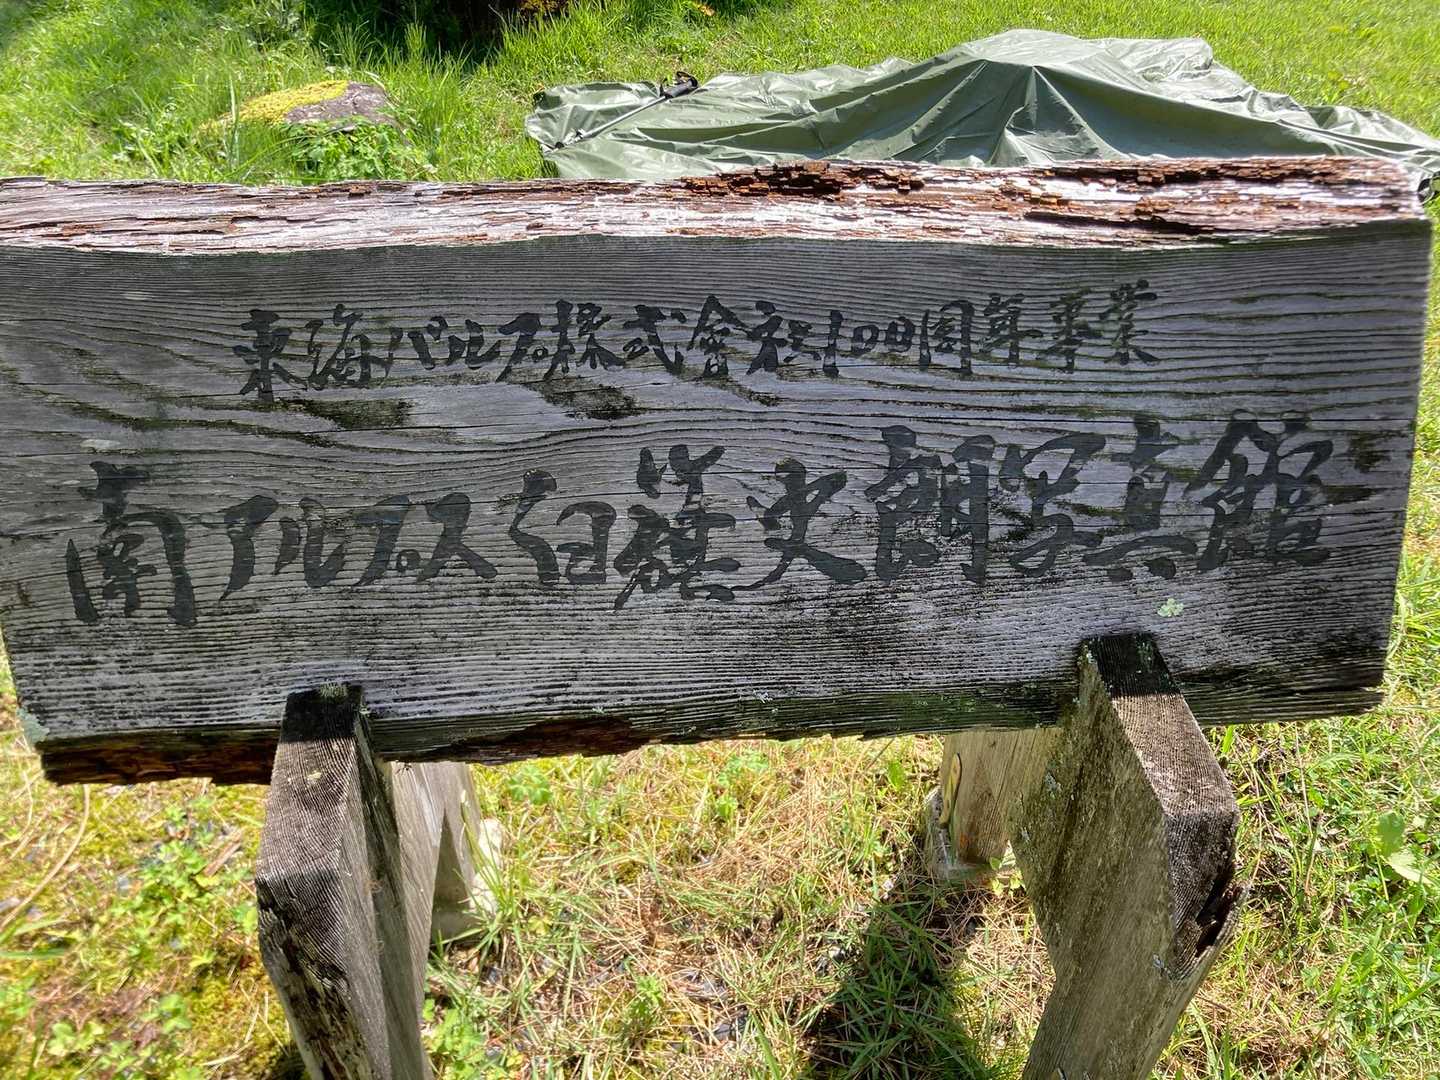 東海パルプ株式會社100周年事業
南アルプス白籏史朗写真館